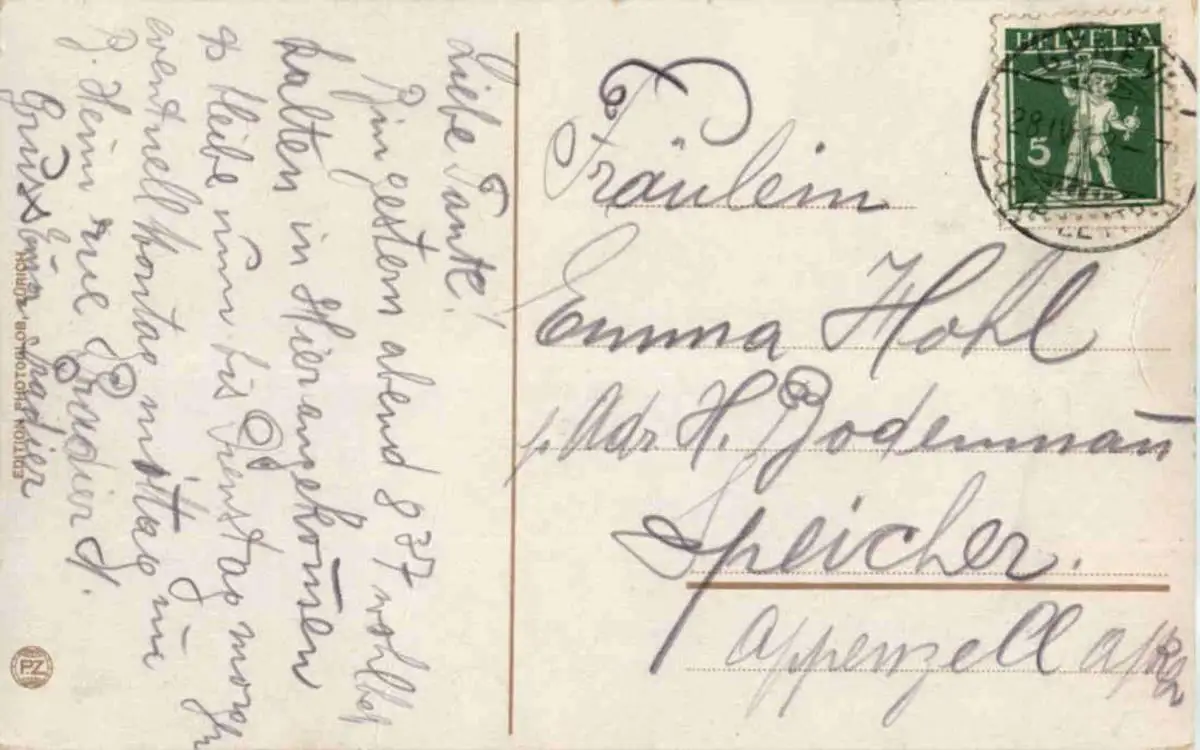 Liebe Tante!
Bin gestern abend 8 37 wohlbe
halten in hier angekom̅en
& bleibe nun bis Dienstag morg
eventuell Montag mittag im
B. Heim rue Pradier 4.
Gruss Euer Pradier
EDITION PHOTOGLOB ZÜRICH
PZ
HELVETIA
5
28 IV
Fräulein
Emma Hohl
p. Adr. H. Bodenman̅
Speicher.
Appenzell